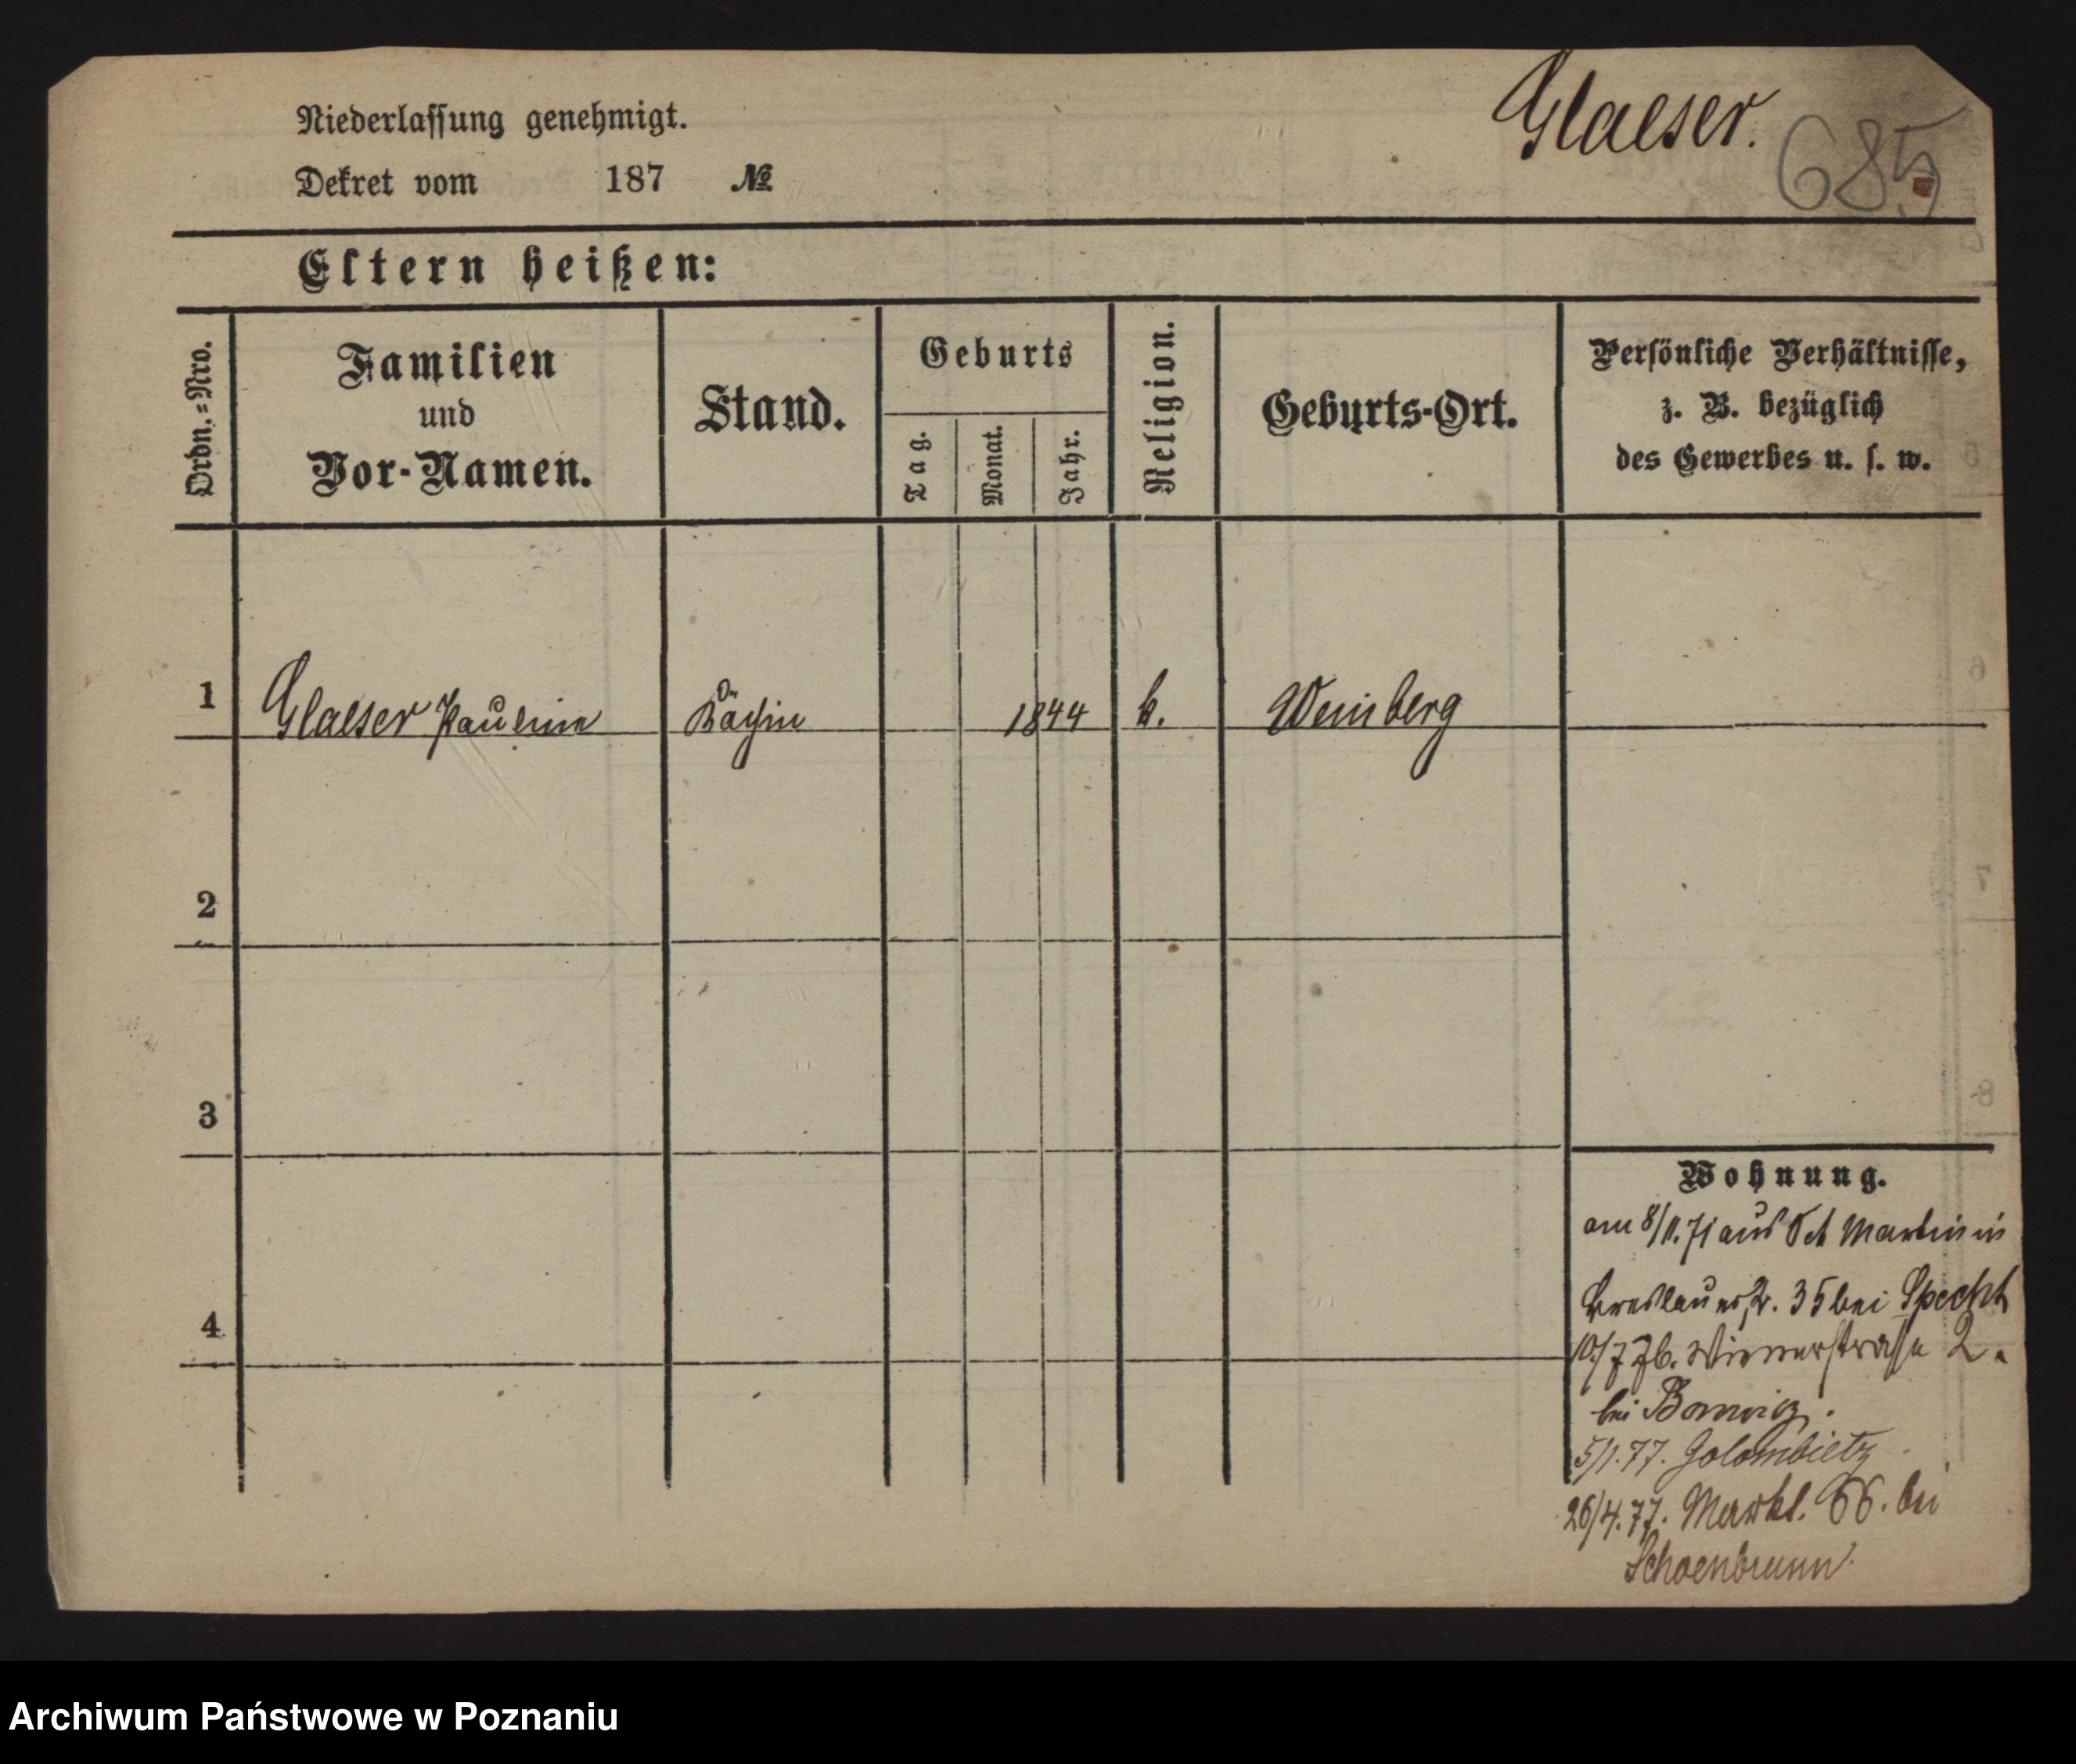 Glaeser.
685
Niederlassung genehmigt.
Dekret vom 187 №
Eltern heißen:
Ordn.=Nro.
Familien
und
Vor-Namen.
Stand.
Geburts
Tag.
Monat.
Jahr.
Religion.
Geburts-Ort.
Persönliche Verhältnisse,
z. B. bezüglich
des Gewerbes u. s. w.
1 Glaeser Pauline Köchin 1844 k. Weinberg
2
3
4
Wohnung.
am 8/11.71 aus Sct Martin in
Breslauerstr. 35 bei Specht
10/7 76. Wienerstrasse 2.
bei
5/1.77. Golombietz
26/4.77. Markt. 66. bei
Schoenbrunn.
Archiwum Państwowe w Poznaniu